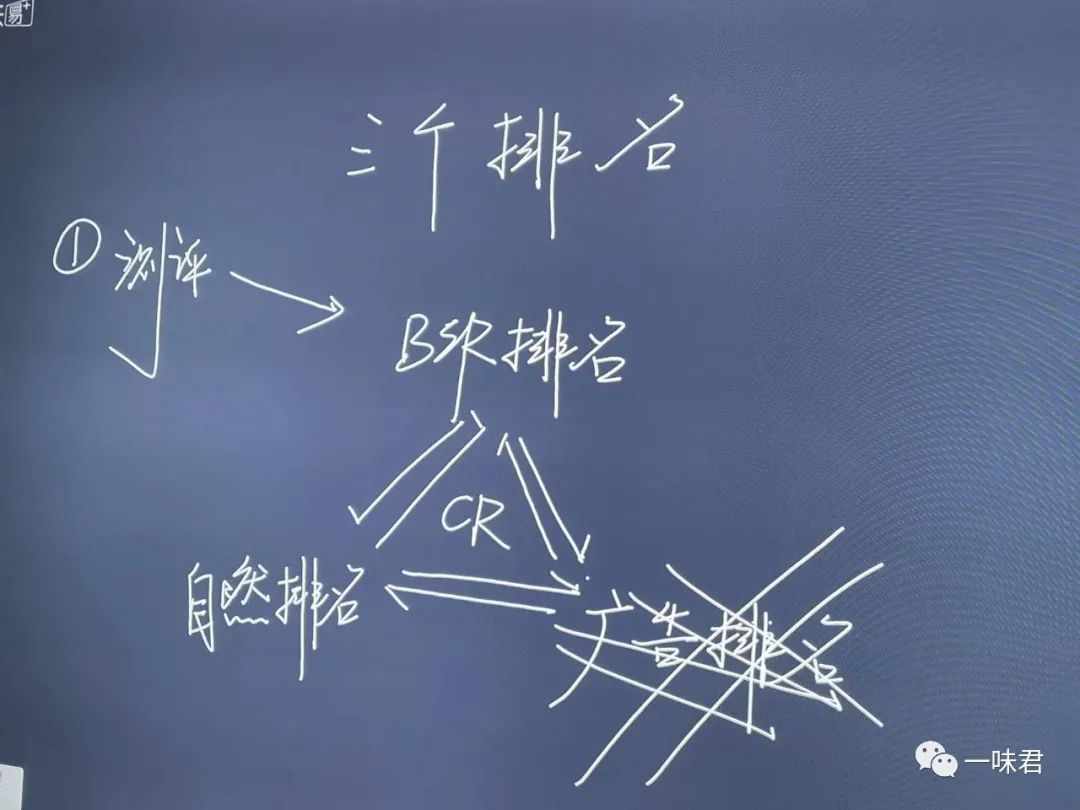 易+
三个排名
① 测评
BSR排名
CR
自然排名
广告排名
一味君